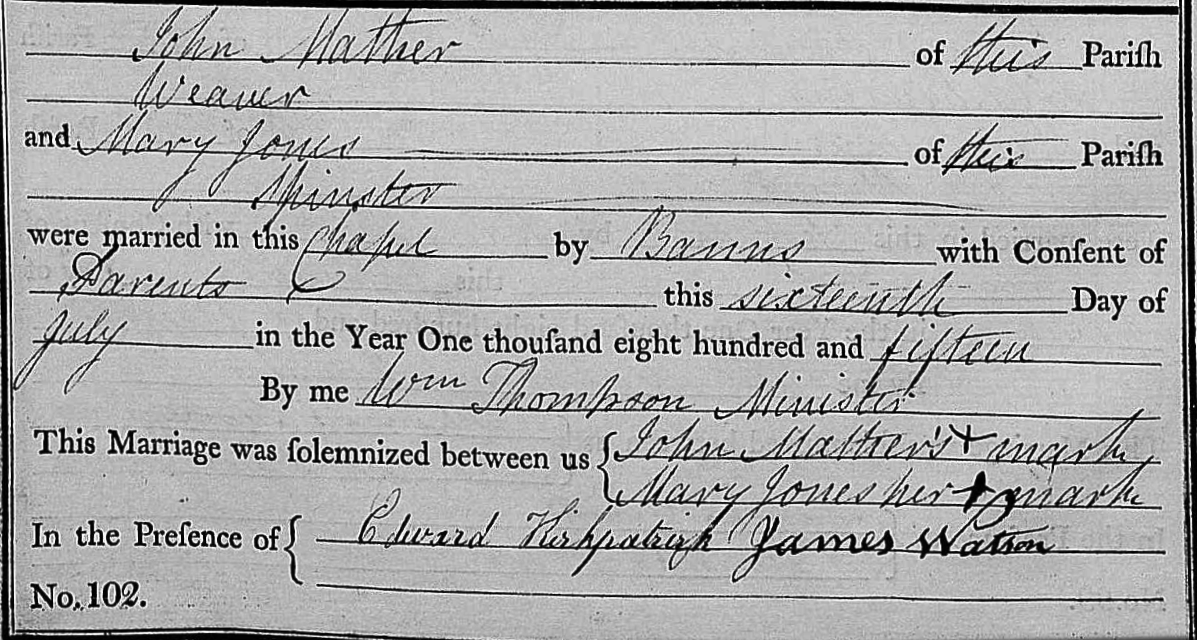 John Mather of this Pariſh
Weaver
and Mary Jones of this Pariſh
Spinster
were married in this Chapel by Banns with Conſent of
Parents this sixteenth Day of
July in the Year One thouſand eight hundred and fifteen
By me Wm Thompson Minister
This Marriage was ſolemnized between us { John Mather's + mark
Mary Jones her + mark
In the Preſence of { Edward Kirkpatrick James Watson
No. 102.